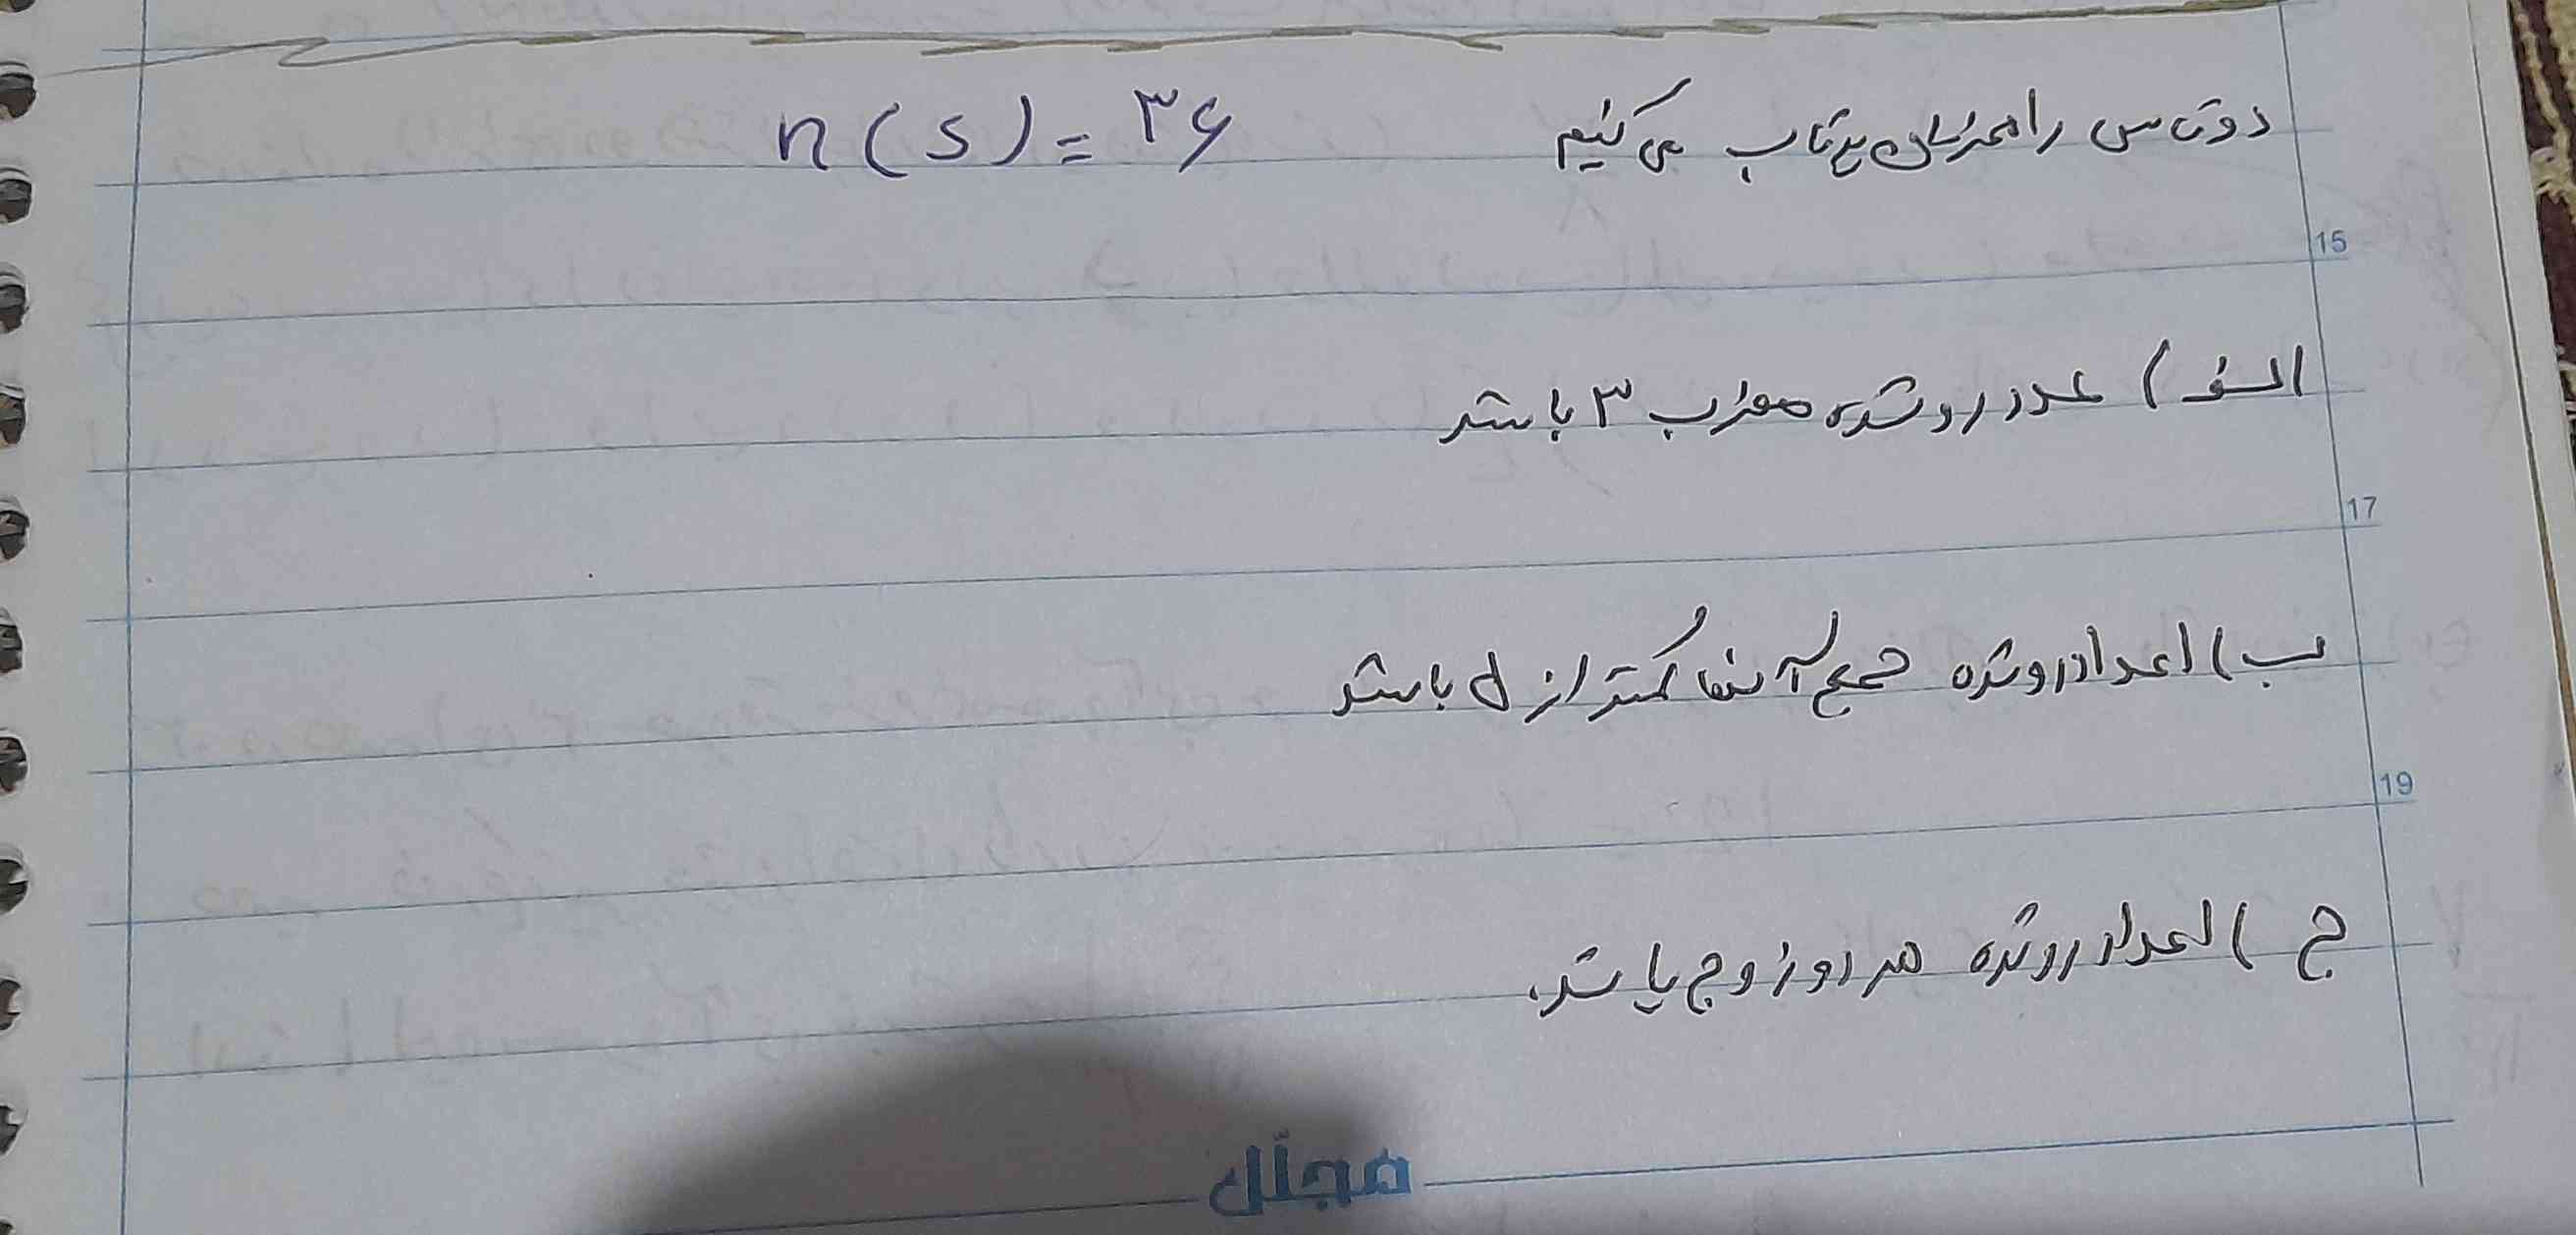 دو تاس را همزمان پرتاب می کنیم n(s) = ۳۶
15
الف) عدد رو شده مضرب ۳ باشد
17
ب) اعداد رو شده جمع آنها کمتر از ۵ باشد
19
ج) اعداد رو شده هر دو زوج باشد.
مجلل